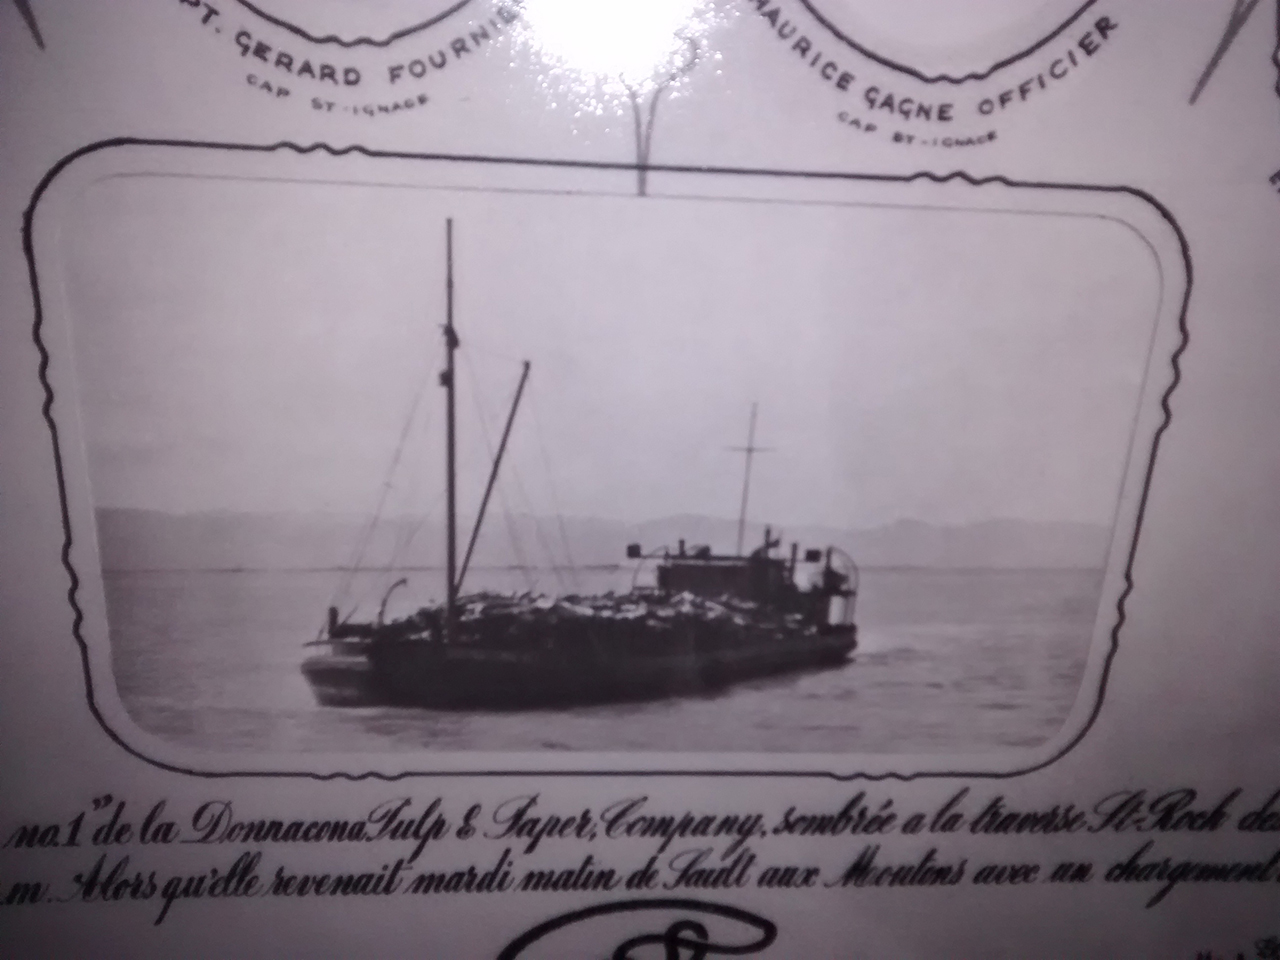 PT. GERARD FOURNIE
CAP ST-IGNACE
MAURICE GAGNE OFFICIER
CAP ST-IGNACE
no.1" de la Donnacona Pulp & Paper, Company, sombrée a la traverse St-Roch de
m. Alors qu'elle revenait mardi matin de Sault aux Moutons avec un chargement